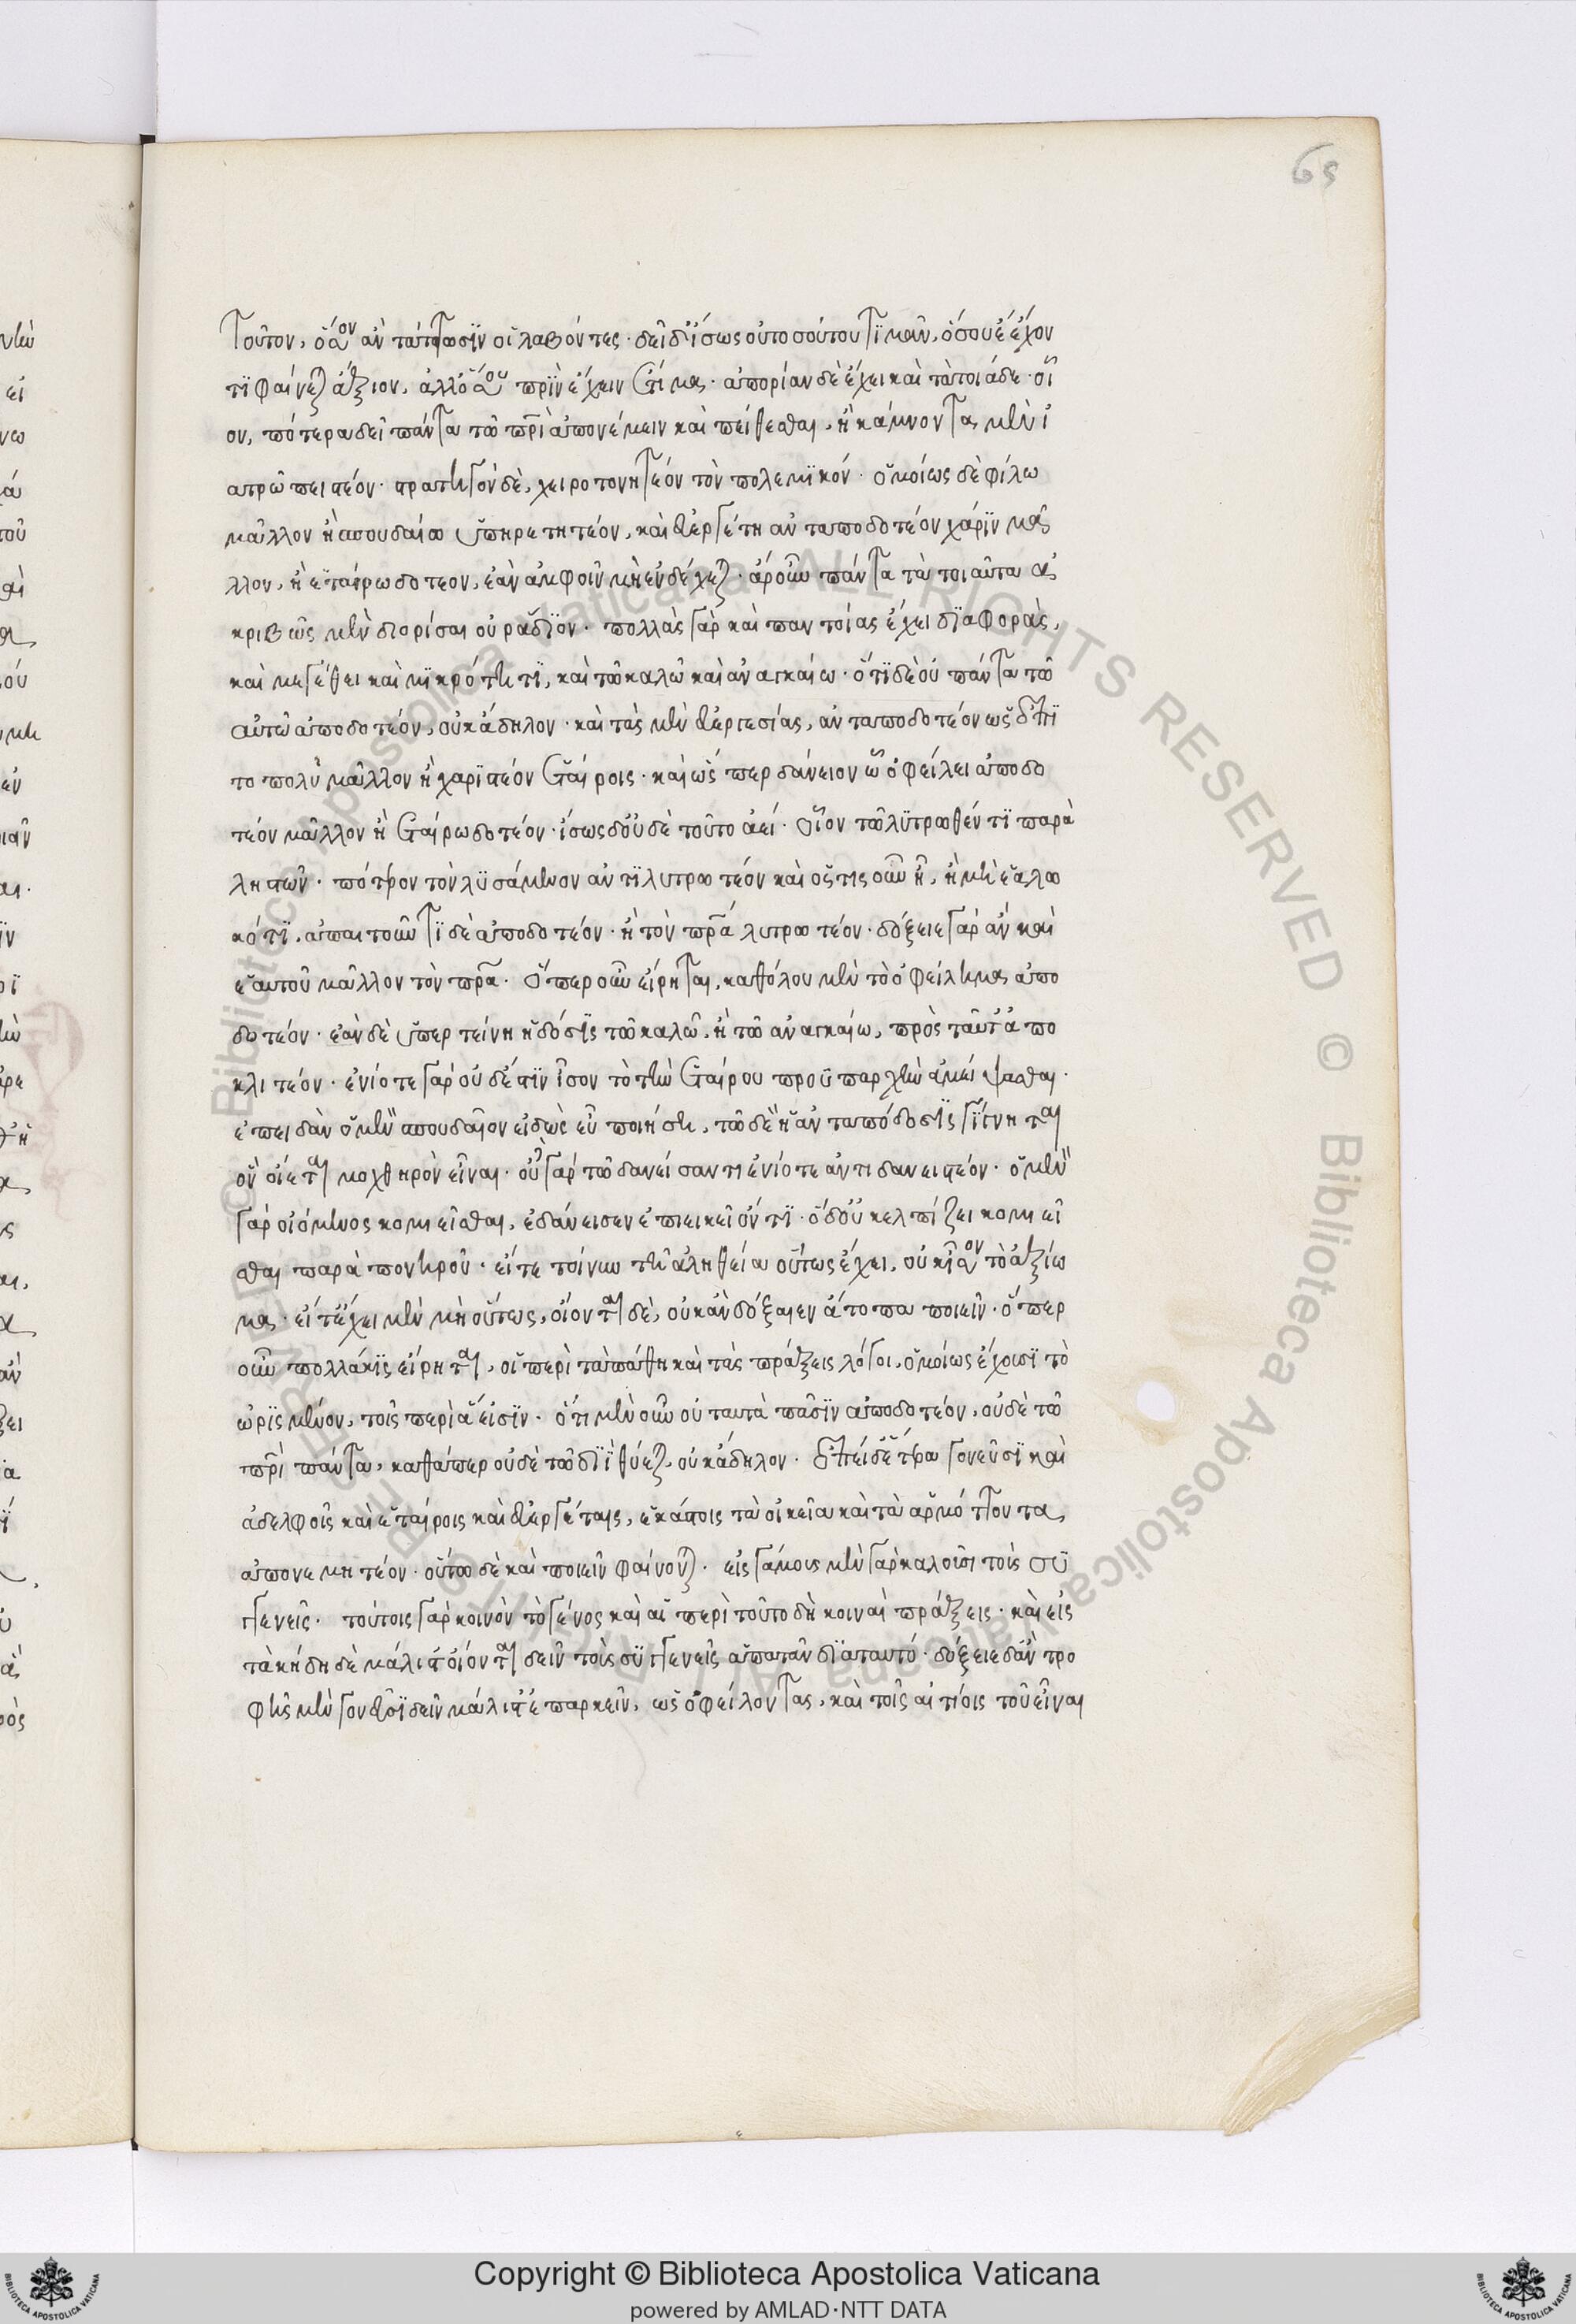 65
τοῦτον, ὅσον ἂν τάττωσϊν οἱ λαβόντες· δεῖ δ' ἴσως οὐ τοσούτου τϊμᾶν, ὅσου ἐ ἔχον
τϊ φαίνεται ἄξιον, ἀλλ' ὅσου πρϊν ἔχειν ἐτίμα· ἀπορίαν δὲ ἔχει καὶ τὰ τοιάδε· οἷ
ον, πότερα δεῖ πάντα τῶ πρὶ ἀπονέμειν καὶ πείθεσθαι, ἢ κάμνοντα μὲν ἰ
ατρῶ πειστέον· στρατηγὸν δὲ, χειροτονητέον τὸν πολεμϊκόν· ὁμοίως δὲ φίλω
μᾶλλον ἢ σπουδαίω ὑπηρετητέον, καὶ εὐεργέτη ἀνταποδοτέον χάρϊν μᾶ
λλον, ἢ ἑταίρω δοτεον, ἐὰν ἀμφοῖν μὴ ἐνδέχεται· ἆρ' οὖν πάντα τὰ τοιαῦτα ἀ
κριβῶς μὲν διορίσαι οὐ ραδϊον· πολλὰς γὰρ καὶ παντοίας ἔχει δϊαφορὰς,
καὶ μεγέθει καὶ μϊκρότητϊ, καὶ τῶ καλῶ καὶ ἀναγκαίω· ὅτϊ δὲ οὐ πάντα τῶ
αὐτῶ ἀποδοτέον, οὐκ ἄδηλον· καὶ τὰς μὲν εὐεργεσίας, ἀνταποδοτέον ὡς ἐπϊ
το πολὺ μᾶλλον ἢ χαρϊστέον ἑταίροις· καὶ ὥσπερ δάνειον ὧ ὀφείλει ἀποδο
τέον μᾶλλον ἢ ἑταίρω δοτέον· ἴσως δ' οὐδὲ τοῦτο ἀεί· οἷον τῶ λϋτρωθέντϊ παρὰ
ληστῶν· πότερον τὸν λϋσάμενον ἀντϊλυτρωτέον καὶ ὅστις οὖν ἦ, ἢ μὴ ἑαλω
κότϊ, ἀπαιτοῦντϊ δὲ ἀποδοτέον· ἢ τὸν πρα λυτρωτέον· δόξειε γὰρ ἂν καὶ
ἑαυτοῦ μᾶλλον τὸν πρα· ὅπερ οὖν εἴρηται, καθόλου μὲν τὸ ὀφείλημα ἀπο
δοτέον· ἐὰν δὲ ὑπερτείνη ἡ δόσϊς τῶ καλῶ, ἢ τῶ ἀναγκαίω, πρὸς ταῦτ' ἀπο
κλιτέον· ἐνίοτε γὰρ οὐδ' ἔστϊν ἶσον τὸ τὴν ἑταίρου προϋπαρχὴν ἀμείψασθαι·
ἐπειδὰν ὁ μὲν σπουδαῖον εἰδὼς εὖ ποιήση, τῶ δὲ ἡ ἀνταπόδοσϊς γϊγνηται
ὃν οἴεται μοχθηρὸν εἶναι· οὐδὲ γὰρ τῶ δανείσαντι ἐνίοτε ἀντιδανειστέον· ὁ μὲν
γὰρ οἰόμενος κομιεῖσθαι, ἐδάνεισεν ἐπιεικεῖ ὄντϊ· ὁ δ' οὐκ ελπίζει κομιεῖ
σθαι παρὰ πονηροῦ· εἴτε τοίνυν τῆ ἀληθεία οὕτως ἔχει, οὐκ ἴσον τὸ ἀξίω
μα· εἴτ' ἔχει μὲν μὴ οὕτως, οἴονται δὲ, οὐκ ἂν δόξαιεν ἄτοπα ποιεῖν· ὅπερ
οὖν πολλάκϊς εἴρηται, οἱ περὶ τὰ πάθη καὶ τὰς πράξεις λόγοι, ὁμοίως ἔχουσϊ τὸ
ὡρϊσμένον, τοῖς περὶ ἅ εἰσϊν· ὅτι μὲν οὖν οὐ ταυτὰ πᾶσϊν ἀποδοτέον, οὐδὲ τῶ
πρὶ πάντα, καθάπερ οὐδὲ τῶ δϊῒ θύεται, οὐκ ἄδηλον· ἐπεὶ δ' ἕτερα γονεῦσϊ καὶ
ἀδελφοῖς καὶ ἑταίροις καὶ εὐεργέταις, ἑκάστοις τὰ οἰκεῖα καὶ τὰ ἁρμόττοντα,
ἀπονεμητέον· οὕτω δὲ καὶ ποιεῖν φαίνονται· εἰς γάμους μὲν γὰρ καλοῦσι τοὺς συ
γγενεῖς· τούτοις γὰρ κοινὸν τὸ γένος καὶ αἱ περὶ τοῦτο δὴ κοιναὶ πράξεις· καὶ εἰς
τὰ κήδη δὲ μάλιστ' οἴονται δεῖν τοὺς συγγενεῖς ἀπαταν δϊαταυτό· δόξειε δ' ἂν τρο
φῆς μὲν γονεῦσϊ δεῖν μάλιστ' ἐπαρκεῖν, ὡς ὀφείλοντας, καὶ τοῖς αἰτίοις τοῦ εἶναι
© Biblioteca Apostolica Vaticana ALL RIGHTS RESERVED © Biblioteca Apostolica Vaticana ALL RIGHTS RESERVED
Copyright © Biblioteca Apostolica Vaticana
powered by AMLAD·NTT DATA
BIBLIOTECA APOSTOLICA VATICANA
BIBLIOTECA APOSTOLICA VATICANA